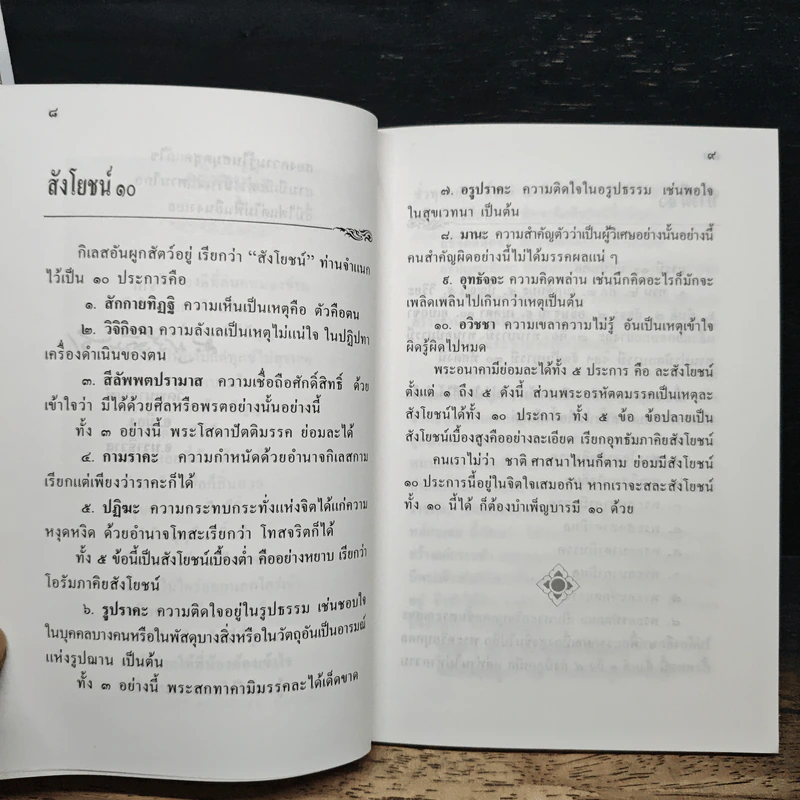 ๘
สังโยชน์ ๑๐
กิเลสอันผูกสัตว์อยู่ เรียกว่า “สังโยชน์” ท่านจำแนก
ไว้เป็น ๑๐ ประการคือ
๑. สักกายทิฏฐิ ความเห็นเป็นเหตุคือ ตัวคือตน
๒. วิจิกิจฉา ความลังเลเป็นเหตุไม่แน่ใจ ในปฏิปทา
เครื่องดำเนินของตน
๓. สีลัพพตปรามาส ความเชื่อถือศักดิ์สิทธิ์ ด้วย
เข้าใจว่า มีได้ด้วยศีลหรือพรตอย่างนั้นอย่างนี้
ทั้ง ๓ อย่างนี้ พระโสดาปัตติมรรค ย่อมละได้
๔. กามราคะ ความกำหนัดด้วยอำนาจกิเลสกาม
เรียกแต่เพียงว่าราคะก็ได้
๕. ปฏิฆะ ความกระทบกระทั่งแห่งจิตได้แก่ความ
หงุดหงิด ด้วยอำนาจโทสะเรียกว่า โทสจริตก็ได้
ทั้ง ๕ ข้อนี้เป็นสังโยชน์เบื้องต่ำ คืออย่างหยาบ เรียกว่า
โอรัมภาคิยสังโยชน์
๖. รูปราคะ ความติดใจอยู่ในรูปธรรม เช่นชอบใจ
ในบุคคลบางคนหรือในพัสดุบางสิ่งหรือในวัตถุอันเป็นอารมณ์
แห่งรูปฌาน เป็นต้น
ทั้ง ๓ อย่างนี้ พระสกทาคามิมรรคละได้เด็ดขาด
๙
๗. อรูปราคะ ความติดใจในอรูปธรรม เช่นพอใจ
ในสุขเวทนา เป็นต้น
๘. มานะ ความสำคัญตัวว่าเป็นผู้วิเศษอย่างนั้นอย่างนี้
คนสำคัญผิดอย่างนี้ไม่ได้มรรคผลแน่ ๆ
๙. อุทธัจจะ ความคิดพล่าน เช่นนึกคิดอะไรก็มักจะ
เพลิดเพลินไปเกินกว่าเหตุเป็นต้น
๑๐. อวิชชา ความเขลาความไม่รู้ อันเป็นเหตุเข้าใจ
ผิดรู้ผิดไปหมด
พระอนาคามีย่อมละได้ทั้ง ๕ ประการ คือ ละสังโยชน์
ตั้งแต่ ๑ ถึง ๕ ดังนี้ ส่วนพระอรหัตตมรรคเป็นเหตุละ
สังโยชน์ได้ทั้ง ๑๐ ประการ ทั้ง ๕ ข้อ ข้อปลายเป็น
สังโยชน์เบื้องสูงคืออย่างละเอียด เรียกอุทธัมภาคิยสังโยชน์
คนเราไม่ว่า ชาติ ศาสนาไหนก็ตาม ย่อมมีสังโยชน์
๑๐ ประการนี้อยู่ในจิตใจเสมอกัน หากเราจะสละสังโยชน์
ทั้ง ๑๐ นี้ได้ ก็ต้องบำเพ็ญบารมี ๑๐ ด้วย